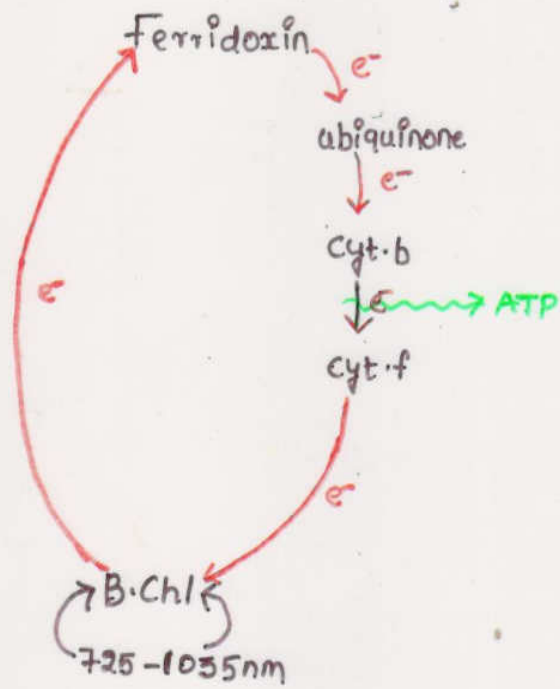 Ferridoxin
e⁻
ubiquinone
e⁻
Cyt.b
e⁻
ATP
Cyt.f
e⁻
e⁻
B.Chl
725-1035nm